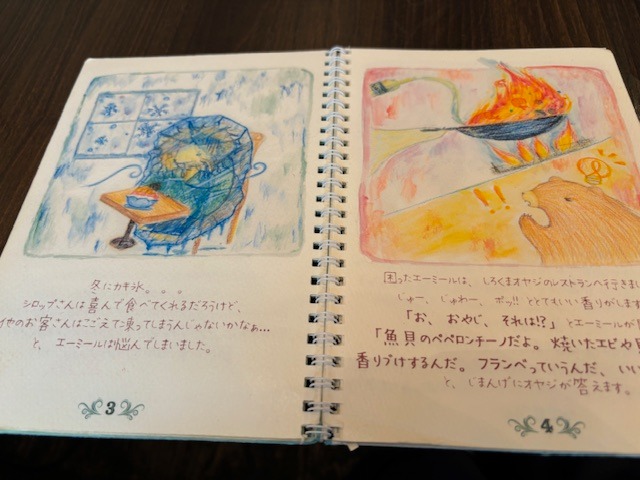 冬にカキ氷。。。
シロップさんは喜んで食べてくれるだろうけど、
他のお客さんはこごえて凍ってしまうんじゃないかなぁ…
と、エーミールは悩んでしまいました。
3
!!
困ったエーミールは、しろくまオヤジのレストランへ行きまし
じゅー、じゅわー、ボッ!! ととてもいい香りがします
「お、おやじ、それは!?」とエーミールが
「魚貝のペペロンチーノだよ。焼いたエビや
香りづけするんだ。フランベっていうんだ、いい
と、じまんげにオヤジが答えます。
4